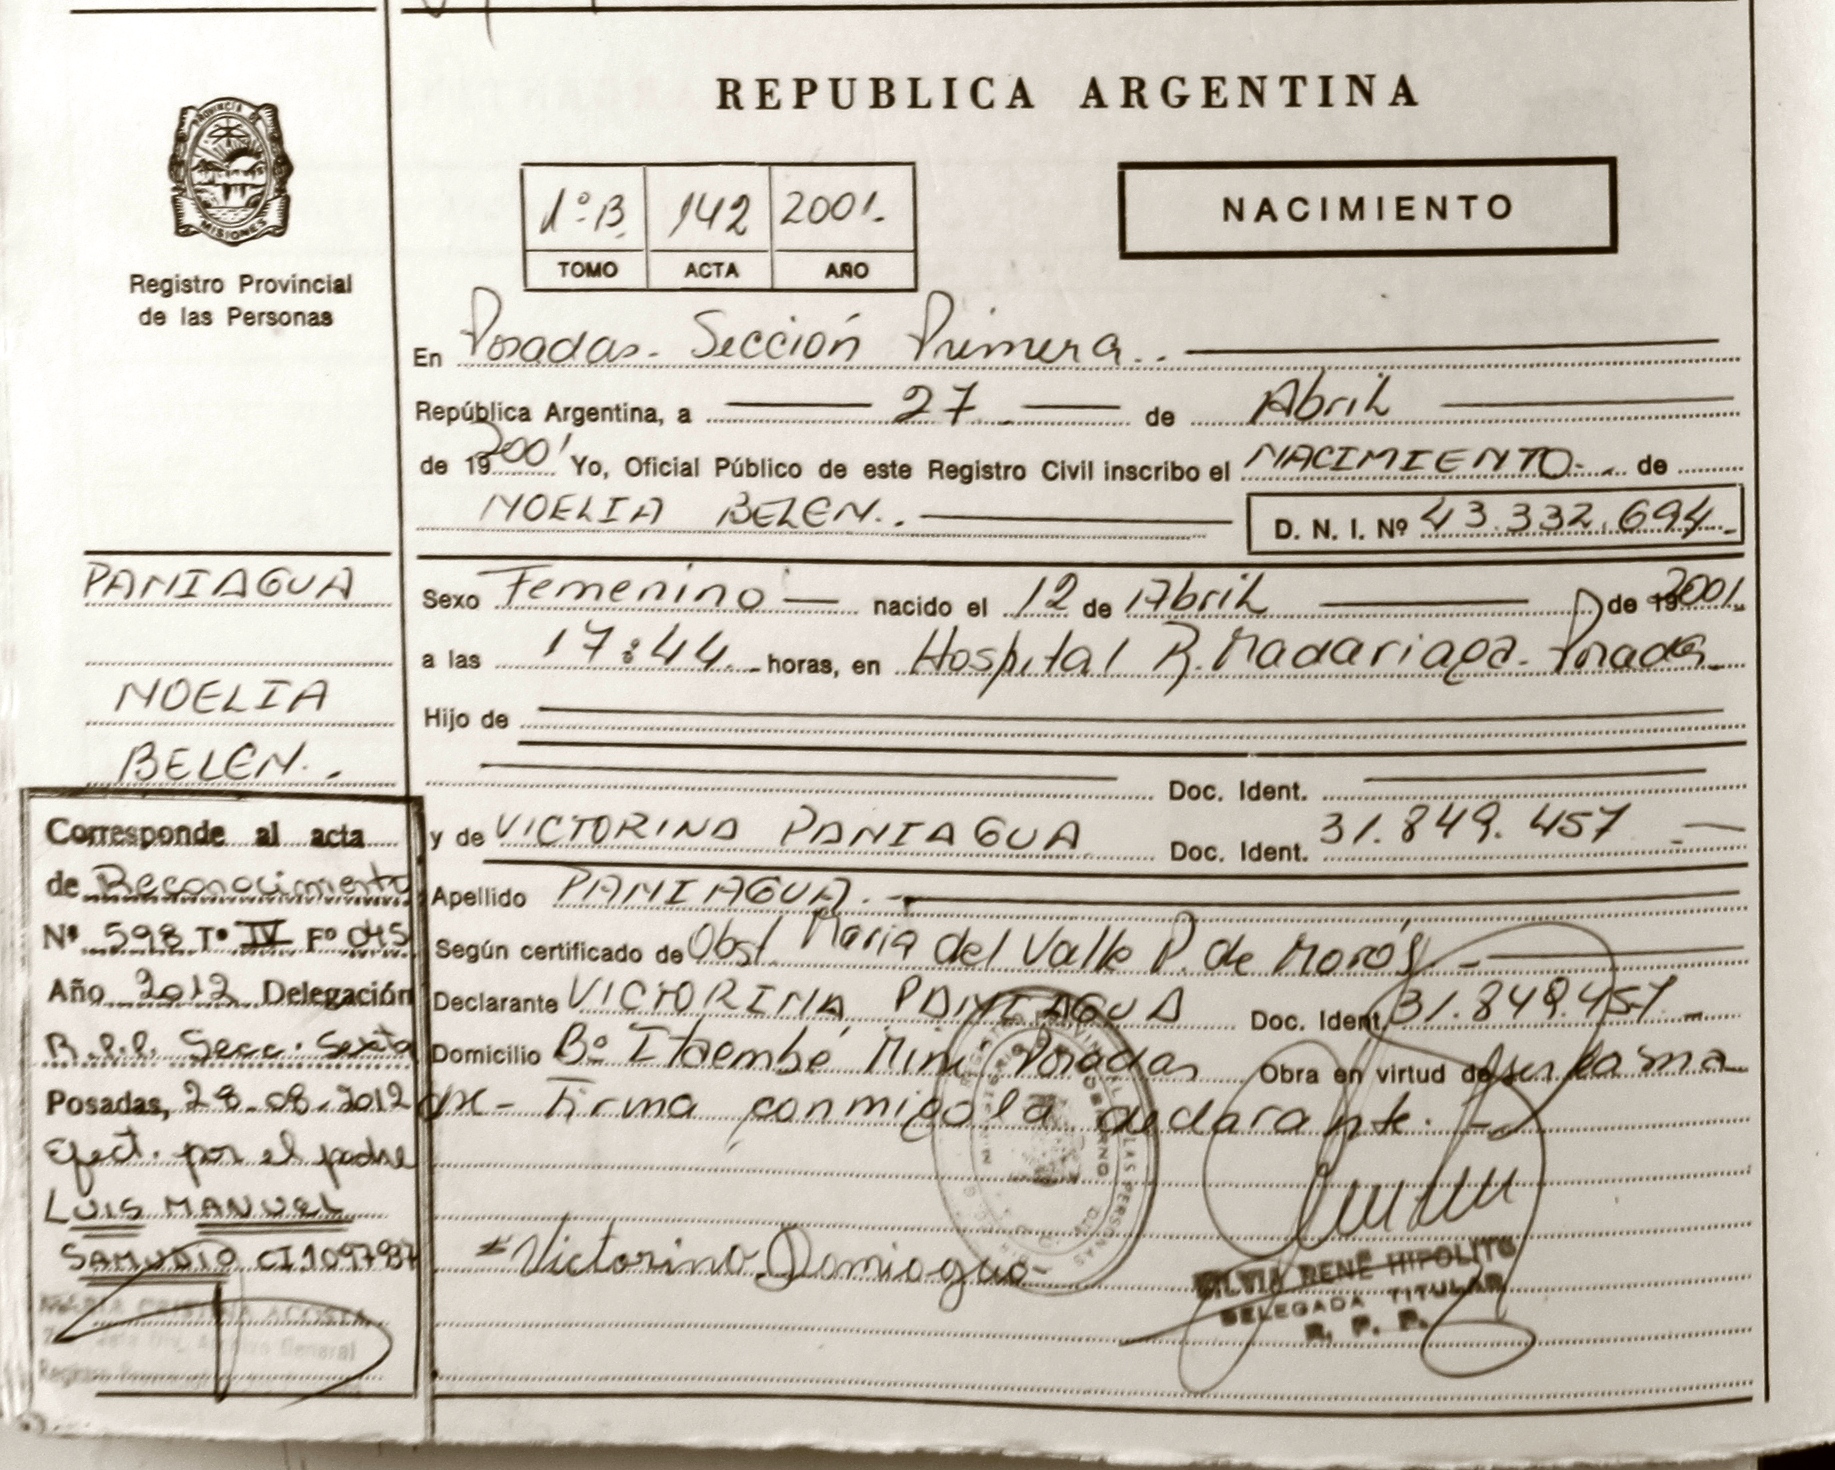 REPUBLICA ARGENTINA
PROVINCIA DE MISIONES
Registro Provincial
de las Personas
1º B. 142 2001.
TOMO ACTA AÑO
NACIMIENTO
En Posadas. Sección Primera..
República Argentina, a 27 de Abril
de 19 2001 Yo, Oficial Público de este Registro Civil inscribo el NACIMIENTO. de
NOELIA BELEN.. D. N. I. Nº 43.332.694
PANIAGUA
NOELIA
BELEN..
Sexo Femenino nacido el 12 de Abril de 19 2001.
a las 17:44 horas, en Hospital R. Madariaga. Posadas
Hijo de
Doc. Ident.
y de VICTORINA PANIAGUA Doc. Ident. 31.849.457
Apellido PANIAGUA.
Según certificado de Obst. Maria del Valle P. de
Declarante VICTORINA PANIAGUA Doc. Ident. 31.849.457
Domicilio Bº Itaembé Mini Posadas Obra en virtud de ser la ma
dre- Firma conmigo la declarante.
Victorina Paniagua
SILVIA RENE HIPOLITO
DELEGADA TITULAR
R. P. P.
Corresponde al acta
de Reconocimiento
Nº 598 Tº IV Fº 045
Año 2012 Delegación
R.P.P. Secc. Sexta
Posadas, 28-08-2012
Efect. por el padre
LUIS MANUEL
SAMUDIO CI 1097987
MARIA CRISTINA ACOSTA
Archivo General